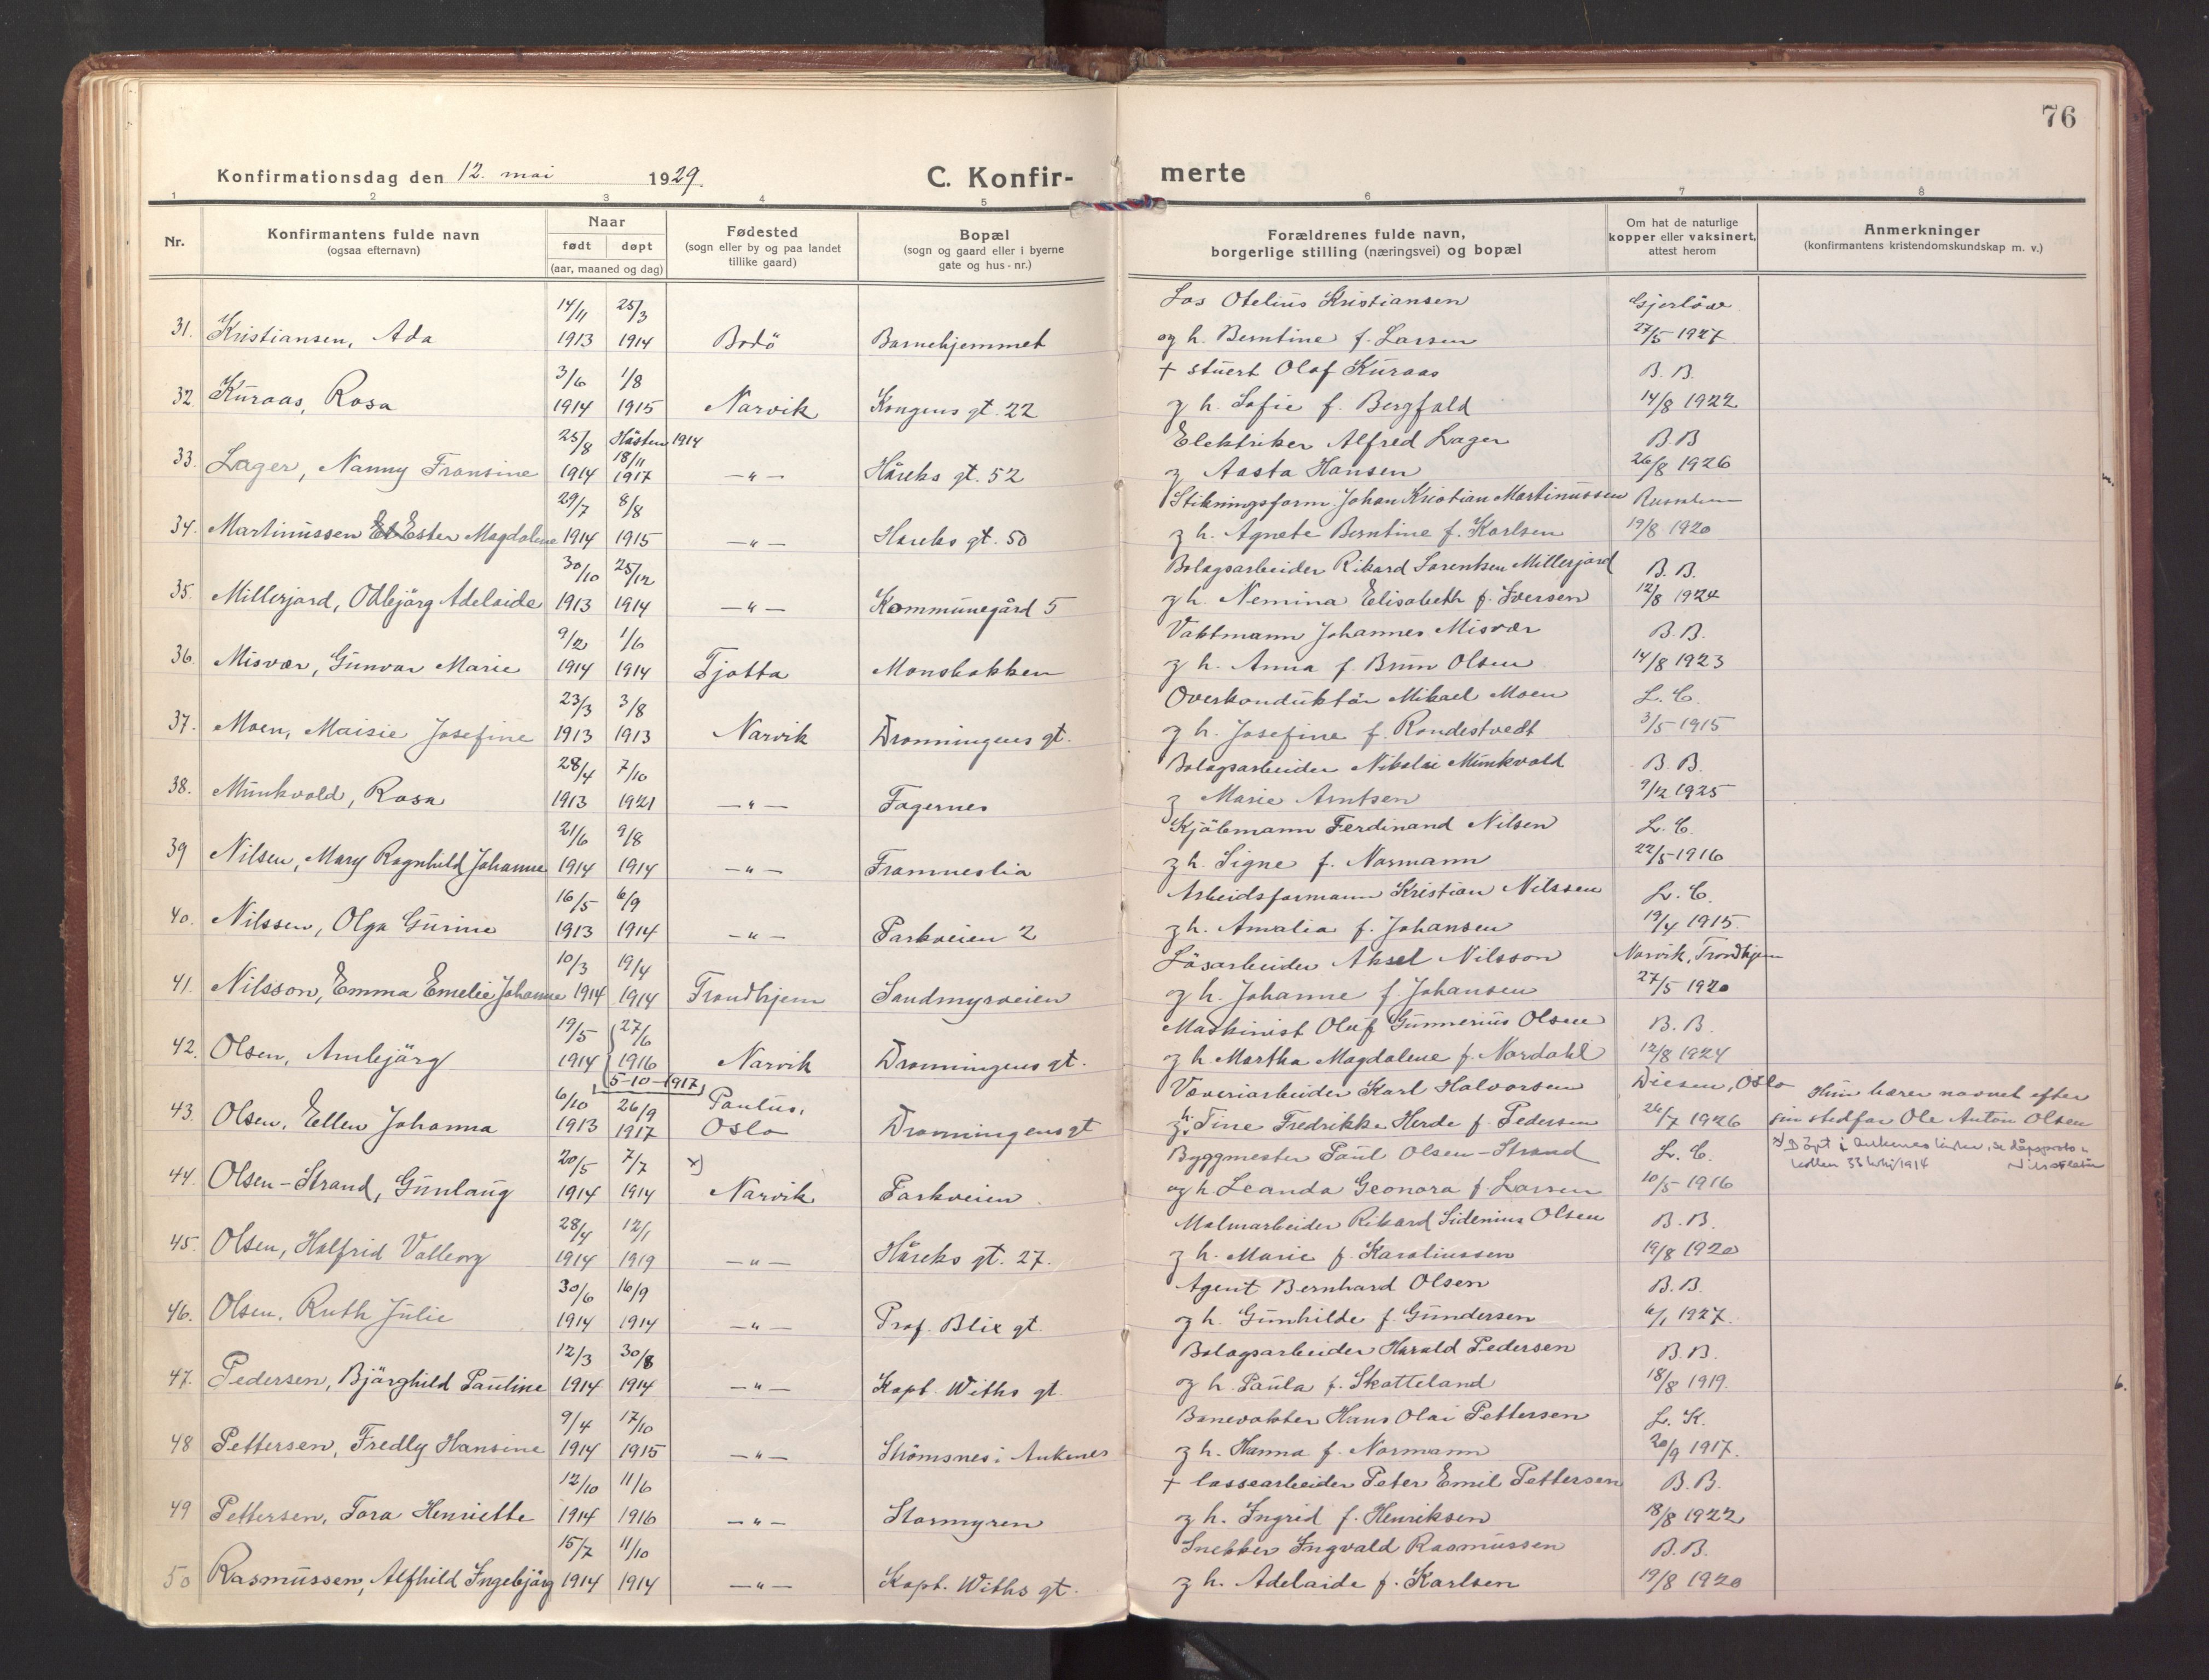 76
Konfirmationsdag den 12. mai 1929.
C. Konfir- merte
1 2 3 4 5 6 7 8
Nr.
Konfirmantens fulde navn
(ogsaa efternavn)
Naar
født døpt
(aar, maaned og dag)
Fødested
(sogn eller by og paa landet
tillike gaard)
Bopæl
(sogn og gaard eller i byerne
gate og hus-nr.)
Forældrenes fulde navn,
borgerlige stilling (næringsvei) og bopæl
Om hat de naturlige
kopper eller vaksinert,
attest herom
Anmerkninger
(konfirmantens kristendomskundskap m. v.)
14/11 25/3 Los Otelius Kristiansen Gjerløw
31. Kristiansen, Ada 1913 1914 Bodö Barnehjemmet og h. Berntine f. Larsen 27/5 1927
3/6 1/8 + stuert Olaf Kuraas B. B.
32. Kuraas, Rosa 1914 1915 Narvik Kongens gt. 22 g h. Sofie f. Bergfald 14/8 1922
25/8 Hösten 1914 Elektriker Alfred Lager B. B
18/11
33. Lager, Nanny Fransine 1914 1917 —"— Håreks gt. 52 g Aasta Hansen 26/8 1926
29/7 8/8 Stikningsform. Johan Kristian Martinussen
34. Martinussen Ester Magdalene 1914 1915 —"— Håreks gt. 50 g h. Agnete Berntine f. Karlsen 19/8 1920
30/10 25/12 Bolagsarbeider Rikard Lorentsen Millerjord B. B.
35. Millerjord, Otbjörg Adelaide 1913 1914 —"— Kommunegård 5 g h. Nemina Elisabeth f. Iversen 12/8 1924
9/2 1/6 Vaktmann Johannes Misvær B. B.
36. Misvær, Gunvor Marie 1914 1914 Tjøtta Monsbakken g h. Anna f. Brun Olsen 14/8 1923
23/3 3/8 Overkonduktör Mikael Moen L. C.
37. Moen, Maisie Josefine 1913 1913 Narvik Dronningens gt. g h. Josefine f. Rondestvedt 3/5 1915
28/4 7/10 Bolagsarbeider Nikolai Munkvold B. B.
38. Munkvold, Rosa 1913 1921 —"— Fagernes g Marie Arntsen 9/12 1925
21/6 9/8 Kjölmann Ferdinand Nilsen L. C.
39 Nilsen, Mary Ragnhild Johanne 1914 1914 —"— Framneslia g h. Signe f. Normann 22/5 1916
16/5 6/9 Arbeidsformann Kristian Nilssen L. C.
40. Nilssen, Olga Gurine 1913 1914 —"— Parkveien 2 g h. Amalia f. Johansen 19/4 1915.
10/3 19/4 Lösarbeider Aksel Nilsson Narvik, Trondhjem
41. Nilsson, Emma Emelie Johanne 1914 1914 Trondhjem Sandmyrveien og h. Johanne f. Johansen 27/5 1920
19/5 27/6 Maskinist Oluf Gunnerius Olsen B. B.
42. Olsen, Ambjörg 1914 1916 Narvik Dronningens gt. og h. Martha Magdalene f. Nordahl 12/8 1924
5-10-1917
6/10 26/9 Paulus, Væveriarbeider Karl Halvorsen Diesen, Oslo Hun bærer navnet efter
43. Olsen, Ellen Johanna 1913 1917 Oslo Dronningens gt g h. Tine Fredrikke Herde f. Pedersen 26/7 1926 sin stedfar Ole Anton Olsen
20/5 7/7 x) Byggmester Paul Olsen-Strand L. C. x) Döpt i Ankenes kirke, se dåpsproto-
kollen 33 1914
44. Olsen-Strand, Gunlaug 1914 1914 Narvik Parkveien. og h Leanda Geonora f. Larsen 10/5 1916
28/4 12/1 Malmarbeider Rikard Sidenius Olsen B. B.
45. Olsen, Halfrid Valborg 1914 1919 —"— Håreks gt. 27. g h. Marie f. Karoliussen 19/8 1920
30/6 16/9 Agent Bernhard Olsen B. B.
46. Olsen, Ruth Julie 1914 1914 —"— Prof. Blix gt. og h. Gunhilde f. Gundersen 6/1 1927.
12/3 30/8 Bolagsarbeider Harald Pedersen B. B.
47. Pedersen, Bjärghild Pauline 1914 1914 —"— Kapt. Withs gt. og h. Paula f. Skatteland 18/8 1919.
9/4 17/10 Banevokter Hans Olai Pettersen L. K.
48 Pettersen, Fredly Hansine 1914 1915 —"— Strömsnes i Ankenes g h. Hanna f. Normann 20/9 1917.
12/10 11/6 + lossearbeider Peter Emil Pettersen B. B.
49 Pettersen, Tora Henriette 1914 1916 —"— Stormyren g h. Ingrid f. Henriksen 18/8 1922
15/7 11/10 Snekker Ingvald Rasmussen B. B.
50 Rasmussen, Alfhild Ingebjörg 1914 1914 —"— Kapt. Withs gt. g h. Adelaide f. Karlsen 19/8 1920